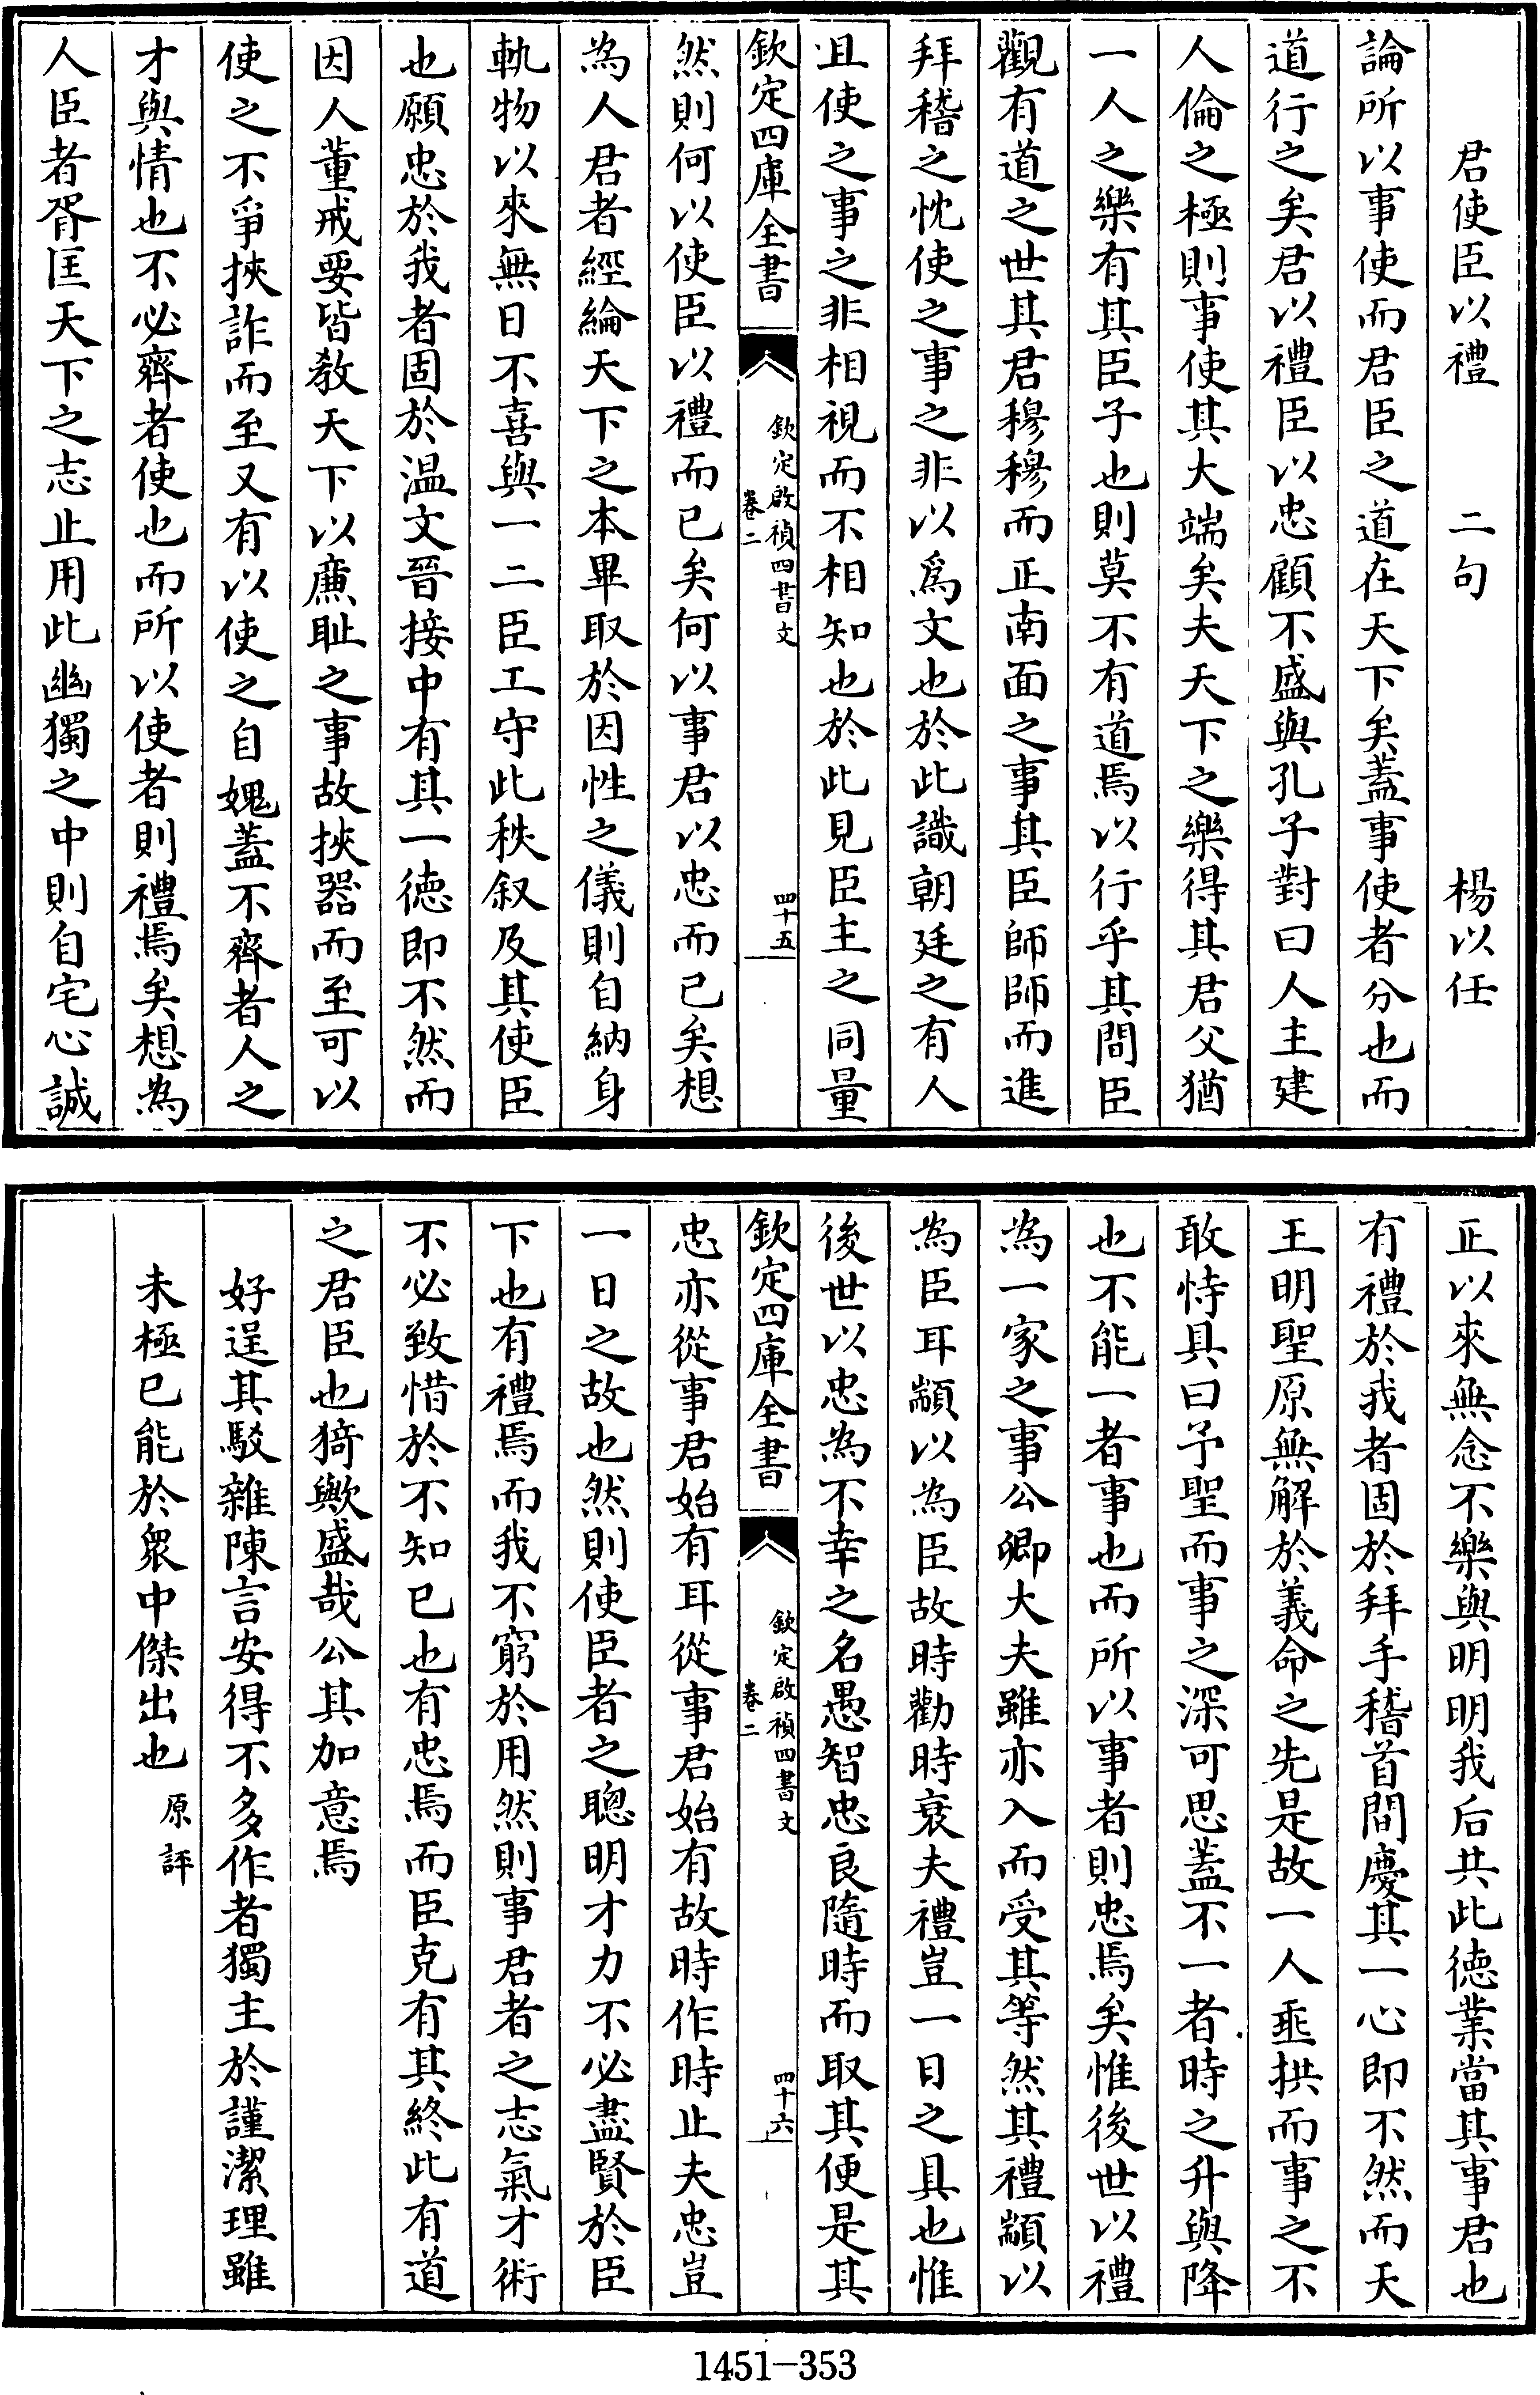 君使臣以禮　二句　楊以任
論所以事使而君臣之道在天下矣蓋事使者分也而
道行之矣君以禮臣以忠顧不盛與孔子對曰人主建
人倫之極則事使其大端矣夫天下之樂得其君父猶
一人之樂有其臣子也則莫不有道焉以行乎其間臣
觀有道之世其君穆穆而正南面之事其臣師師而進
拜稽之忱使之事之非以爲文也於此識朝廷之有人
且使之事之非相視而不相知也於此見臣主之同量
欽定四庫全書
欽定啟禎四書文
卷二
四十五
然則何以使臣以禮而已矣何以事君以忠而已矣想
為人君者經綸天下之本畢取於因性之儀則自納身
軌物以來無日不喜與一二臣工守此秩叙及其使臣
也願忠於我者固於温文晉接中有其一徳即不然而
因人董戒要皆敎天下以亷耻之事故挾器而至可以
使之不爭挾詐而至又有以使之自媿蓋不齊者人之
才與情也不必齊者使也而所以使者則禮焉矣想為
人臣者胥匡天下之志止用此幽獨之中則自宅心誠
正以來無念不樂與明明我后共此徳業當其事君也
有禮於我者固於拜手稽首間慶其一心即不然而天
王明聖原無解於義命之先是故一人垂拱而事之不
敢恃具曰予聖而事之深可思蓋不一者時之升與降
也不能一者事也而所以事者則忠焉矣惟後世以禮
為一家之事公卿大夫雖亦入而受其等然其禮顓以
為臣耳顓以為臣故時勸時衰夫禮豈一日之具也惟
後世以忠為不幸之名愚智忠良隨時而取其便是其
欽定四庫全書
欽定啟禎四書文
卷二
四十六
忠亦從事君始有耳從事君始有故時作時止夫忠豈
一日之故也然則使臣者之聰明才力不必盡賢於臣
下也有禮焉而我不窮於用然則事君者之志氣才術
不必致惜於不知已也有忠焉而臣克有其終此有道
之君臣也猗歟盛哉公其加意焉
好逞其駁雜陳言安得不多作者獨主於謹潔理雖
未極已能於衆中傑出也原評
1451—353